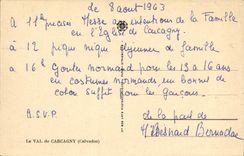 le 8 aout 1963
à 11h precises Messe aux intentions de la Famille
en l'Eglise de Carcagny.
à 12 pique nique dejeuner de famille
à 16h Gouter normand pour les 13 à 16 ans
en costumes normands un bonnet de
coton suffit pour les Garçons.
R.S.V.P.
de la part de
Bernadac
Le VAL de CARCAGNY (Calvados)